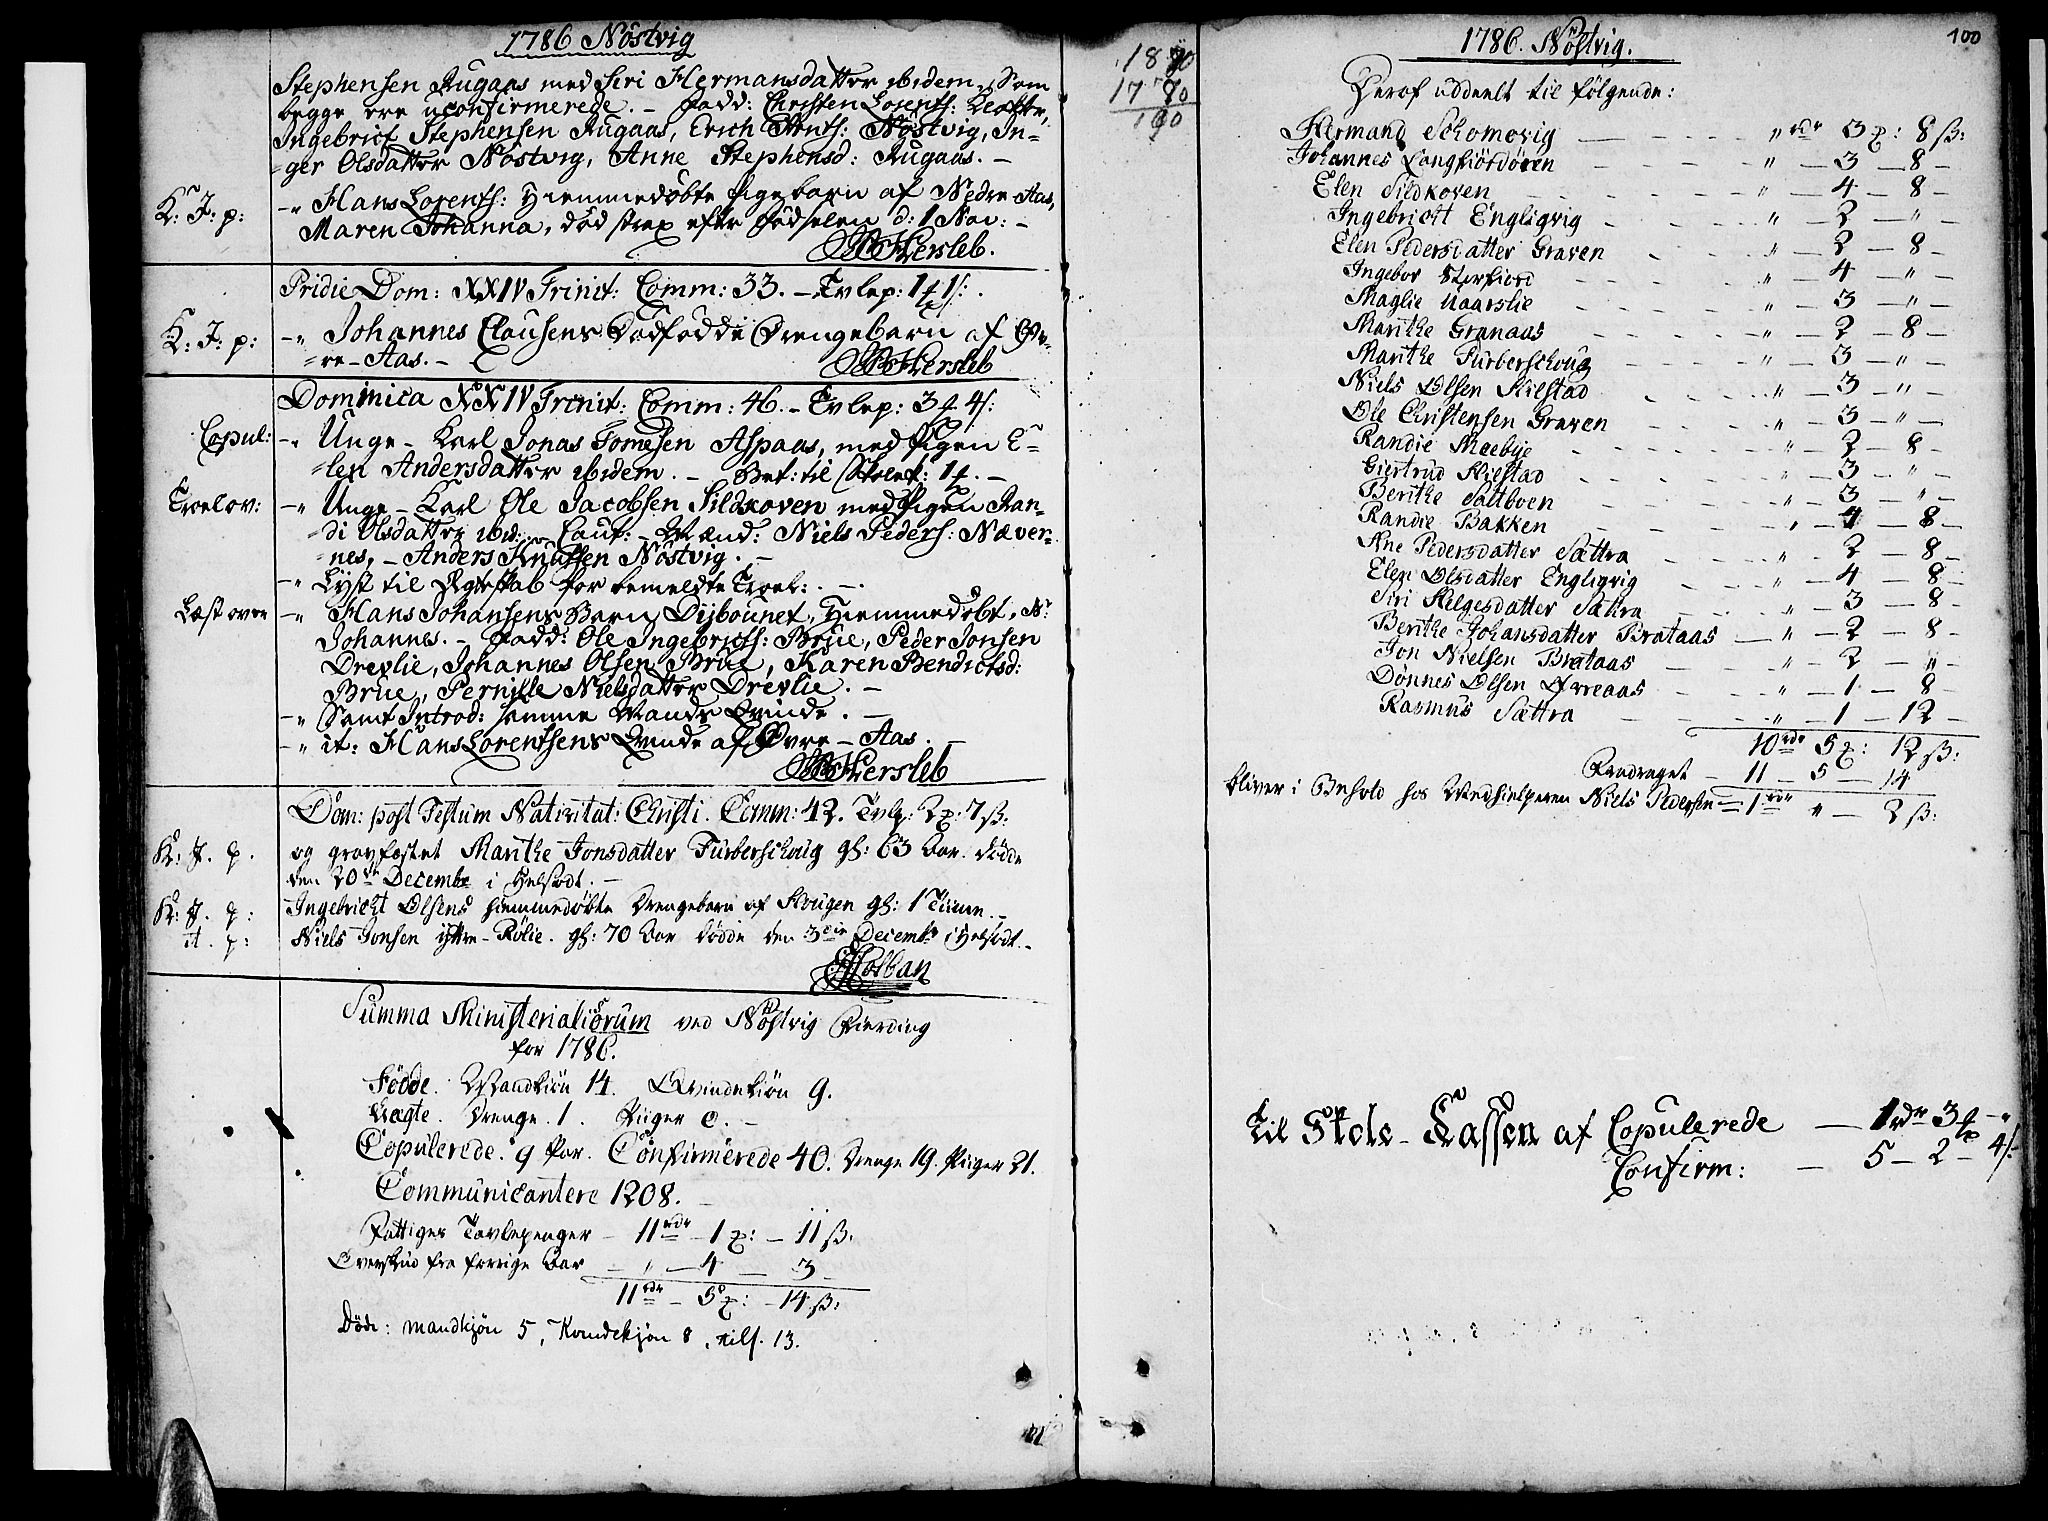 1786 Nöstvig
Stephensen Augaas med Siri Hermansdatter ibidem, Som
begge ere uconfirmerede. – Fadd: Christen Lorents:
Ingebrict Stephensen Augaas, Erich Nöstvig, In-
ger Olsdatter Nöstvig, Anne Stephensd: Augaas. –
K: J: p: -" Hans Lorents: Hiemmedøbte Pigebarn af Nedre Aas,
Maren Johanna, död strax efter Födselen d: 1 Nov: –
Hersleb.
Pridie Dom: XXIV Trinit: Comm: 33. – Tvlep:
K: J: p: -" Johannes Clausens Dödfödde Drengebarn af Öv-
re – Aas. –
Hersleb
Dominica XXIV Trinit: Comm: 46. – Tvlep: 3
Copul: -" Unge – Karl Jonas Tomesen Aspaas, med Pigen E-
len Andersdatter ibidem. – Bet: til
Troelov: -" Unge – Karl Ole Jacobsen Sildkoven med Pigen Ran-
di Olsdatter ibid: – Caut: – Mænd: Niels Peders: Næver-
nes, – Anders Knutsen Nöstvig. –
-" Lyst til Ægteskab for bemeldte Troel: . –
Læst over -" Hans Johansens Barn Dijbounet, Hiemmedöbt, N:
Johannes. – Fadd: Ole Ingebricts: Brue, Peder Jonsen
Drevlie, Johannes Olsen Brue, Karen Bendictsd:
Brue, Pernille Nielsdatter Drevlie. –
-" Samt Introd: samme Mands Qvinde. –
-" it: Hans Lorentsens Qvinde af Övre – Aas. –
Hersleb
Dom: post Festum Nativitat: Christi. Comm: 42. Tvlp: 2 : 7 ß:
K: J. p. og gravfæstet Marithe Jonsdatter Furberschoug gl: 63 Aar. Døde
den 20de Decembr i Helsodt. –
K: J. p: Ingebricht Olsens hiemmedøbte Drengebarn af Hougen gl: 1 Time. –
it. p: Niels Jonsen ijttre – Rölie. gl: 70 Aar døde den 3die Decembr i Helsodt. –
Holban
Summa Ministerialiorum ved Nöstvig Fierding
for 1786.
Födde. Mandkiön 14. Qvindekiön 9.
Uægte. Drenge. 1. Piiger 0. –
Copulerede. 9 Par. Confirmerede 40. Drenge 19. Piiger 21.
Communicantere 1208. –
Fattiges Tavlepenger – 11 rdr – 1 : – 11 ß:
Overskud fra forrige Aar – " – 4 – 3 –
11 rdr – 5 : – 14 ß:
Døde: mandkjøn 5, Kvindekjøn 8, tils. 13.
18
17
100
1786. Nöstvig.
Deraf uddeelt til følgende:
Hermand Schomovig – " rdr 3 : 8 ß:
Johannes Langfiördören – " – 3 – 8 –
Elen Sildkoven – " – 4 – 8 –
Ingebricht Engligvig – " – 2 – " –
Elen Pedersdatter Graven – " – 2 – 8 –
Ingebor Storfiord – " – 4 – " –
Maglie Uaarslie – " – 3 – " –
Marithe Granaas – " – 2 – 8 –
Marithe Furberschoug – " – 3 – " –
Niels Olsen Kilstad – " – 3 – " –
Ole Christensen Graven – " – 3 – " –
Randie Mæebye – " – 2 – 8 –
Giertrud Kilstad – " – 3 – " –
Berithe Saltboen – " – 3 – " –
Randie Bakken – " – 4 – 8 –
Ane Pedersdatter Sættra – " – 2 – 8 –
Elen Olsdatter Engligvig – " – 4 – 8 –
Siri Helgesdatter Sættra – " – 3 – 8 –
Berithe Johansdatter Brataas – " – 2 – 8 –
Jon Nielsen Brataas – " – 2 – " –
Dønnes Olsen Øvreaas – " – 1 – 8 –
Rasmus Sættra – " – 1 – 12 –
10 rdr 5 : 12 ß:
Fradraget – 11 – 5 – 14
bliver i Behold hos Medhielperen Niels Pedersen = 1 rdr " – 2 ß:
Til Stole – Cassen af Copulerede – 1 rdr 3 – "
Confirm: – 5 – 2 – 4